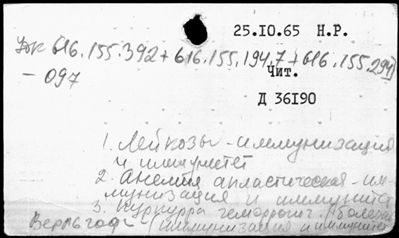 25.IO.65 Н.Р.
УДК 616.155.392+616.155.194.7+616.155.294
-097
Чит.
Д 36I90
1. Лейкозы - иммунизация
и иммунитет
2. Анемия апластическая - им-
мунизация и иммунитет
3. Пурпура геморрагич. (болезнь
Верльгофа - иммунизация и иммунитет